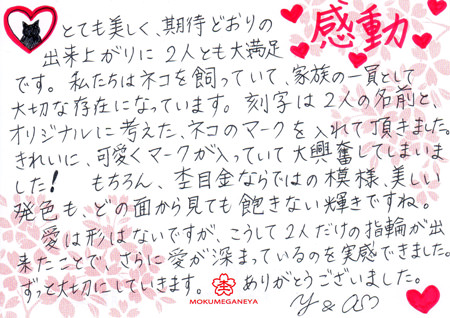 感動
とても美しく、期待どおりの
出来上がりに2人とも大満足
です。私たちはネコを飼っていて、家族の一員として
大切な存在になっています。刻字は2人の名前と、
オリジナルに考えた、ネコのマークを入れて頂きました。
きれいに、可愛くマークが入っていて大興奮してしまいま
した! もちろん、杢目金ならではの模様、美しい
発色も、どの面から見ても飽きない輝きですね。
愛は形はないですが、こうして2人だけの指輪が出
来たことで、さらに愛が深まっているのを実感できました。
ずっと大切にしていきます。ありがとうございました。
MOKUMEGANEYA
y & a